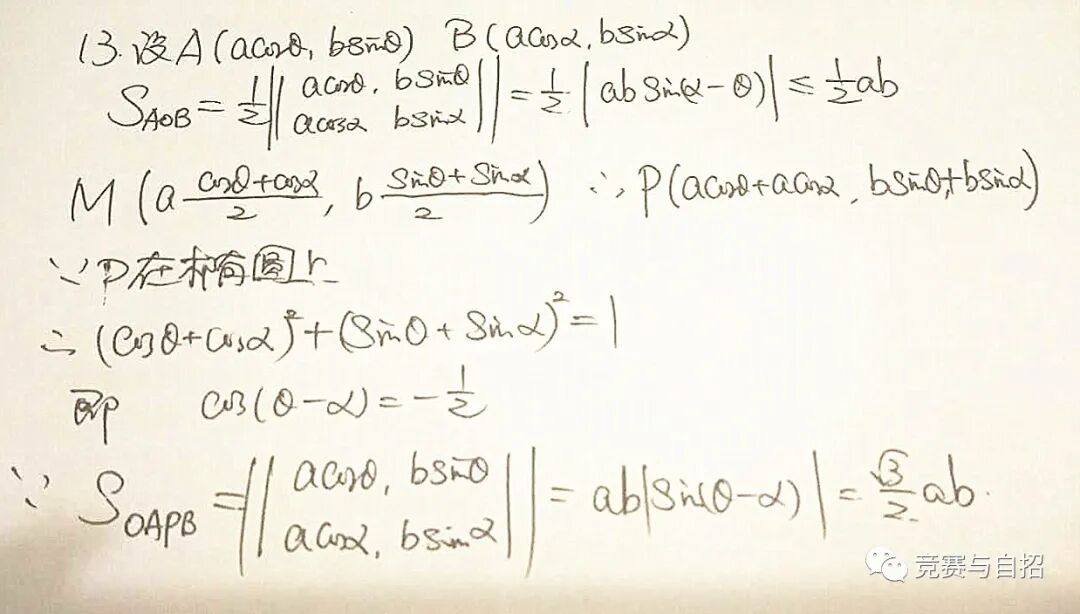 13. 设A(acosθ, bsinθ) B(acosα, bsinα)
S_AOB = 1/2 || acosθ, bsinθ ; acosα bsinα || = 1/2 |ab sin(α-θ)| ≤ 1/2 ab
M(a (cosθ+cosα)/2, b (sinθ+sinα)/2) ∴ P(acosθ+acosα, bsinθ+bsinα)
∵ P在椭圆上
∴ (cosθ+cosα)²+(sinθ+sinα)²=1
即 cos(θ-α)=-1/2
∵ S_OAPB = || acosθ, bsinθ ; acosα, bsinα || = ab|sin(θ-α)| = √3/2 ab.
竞赛与自招